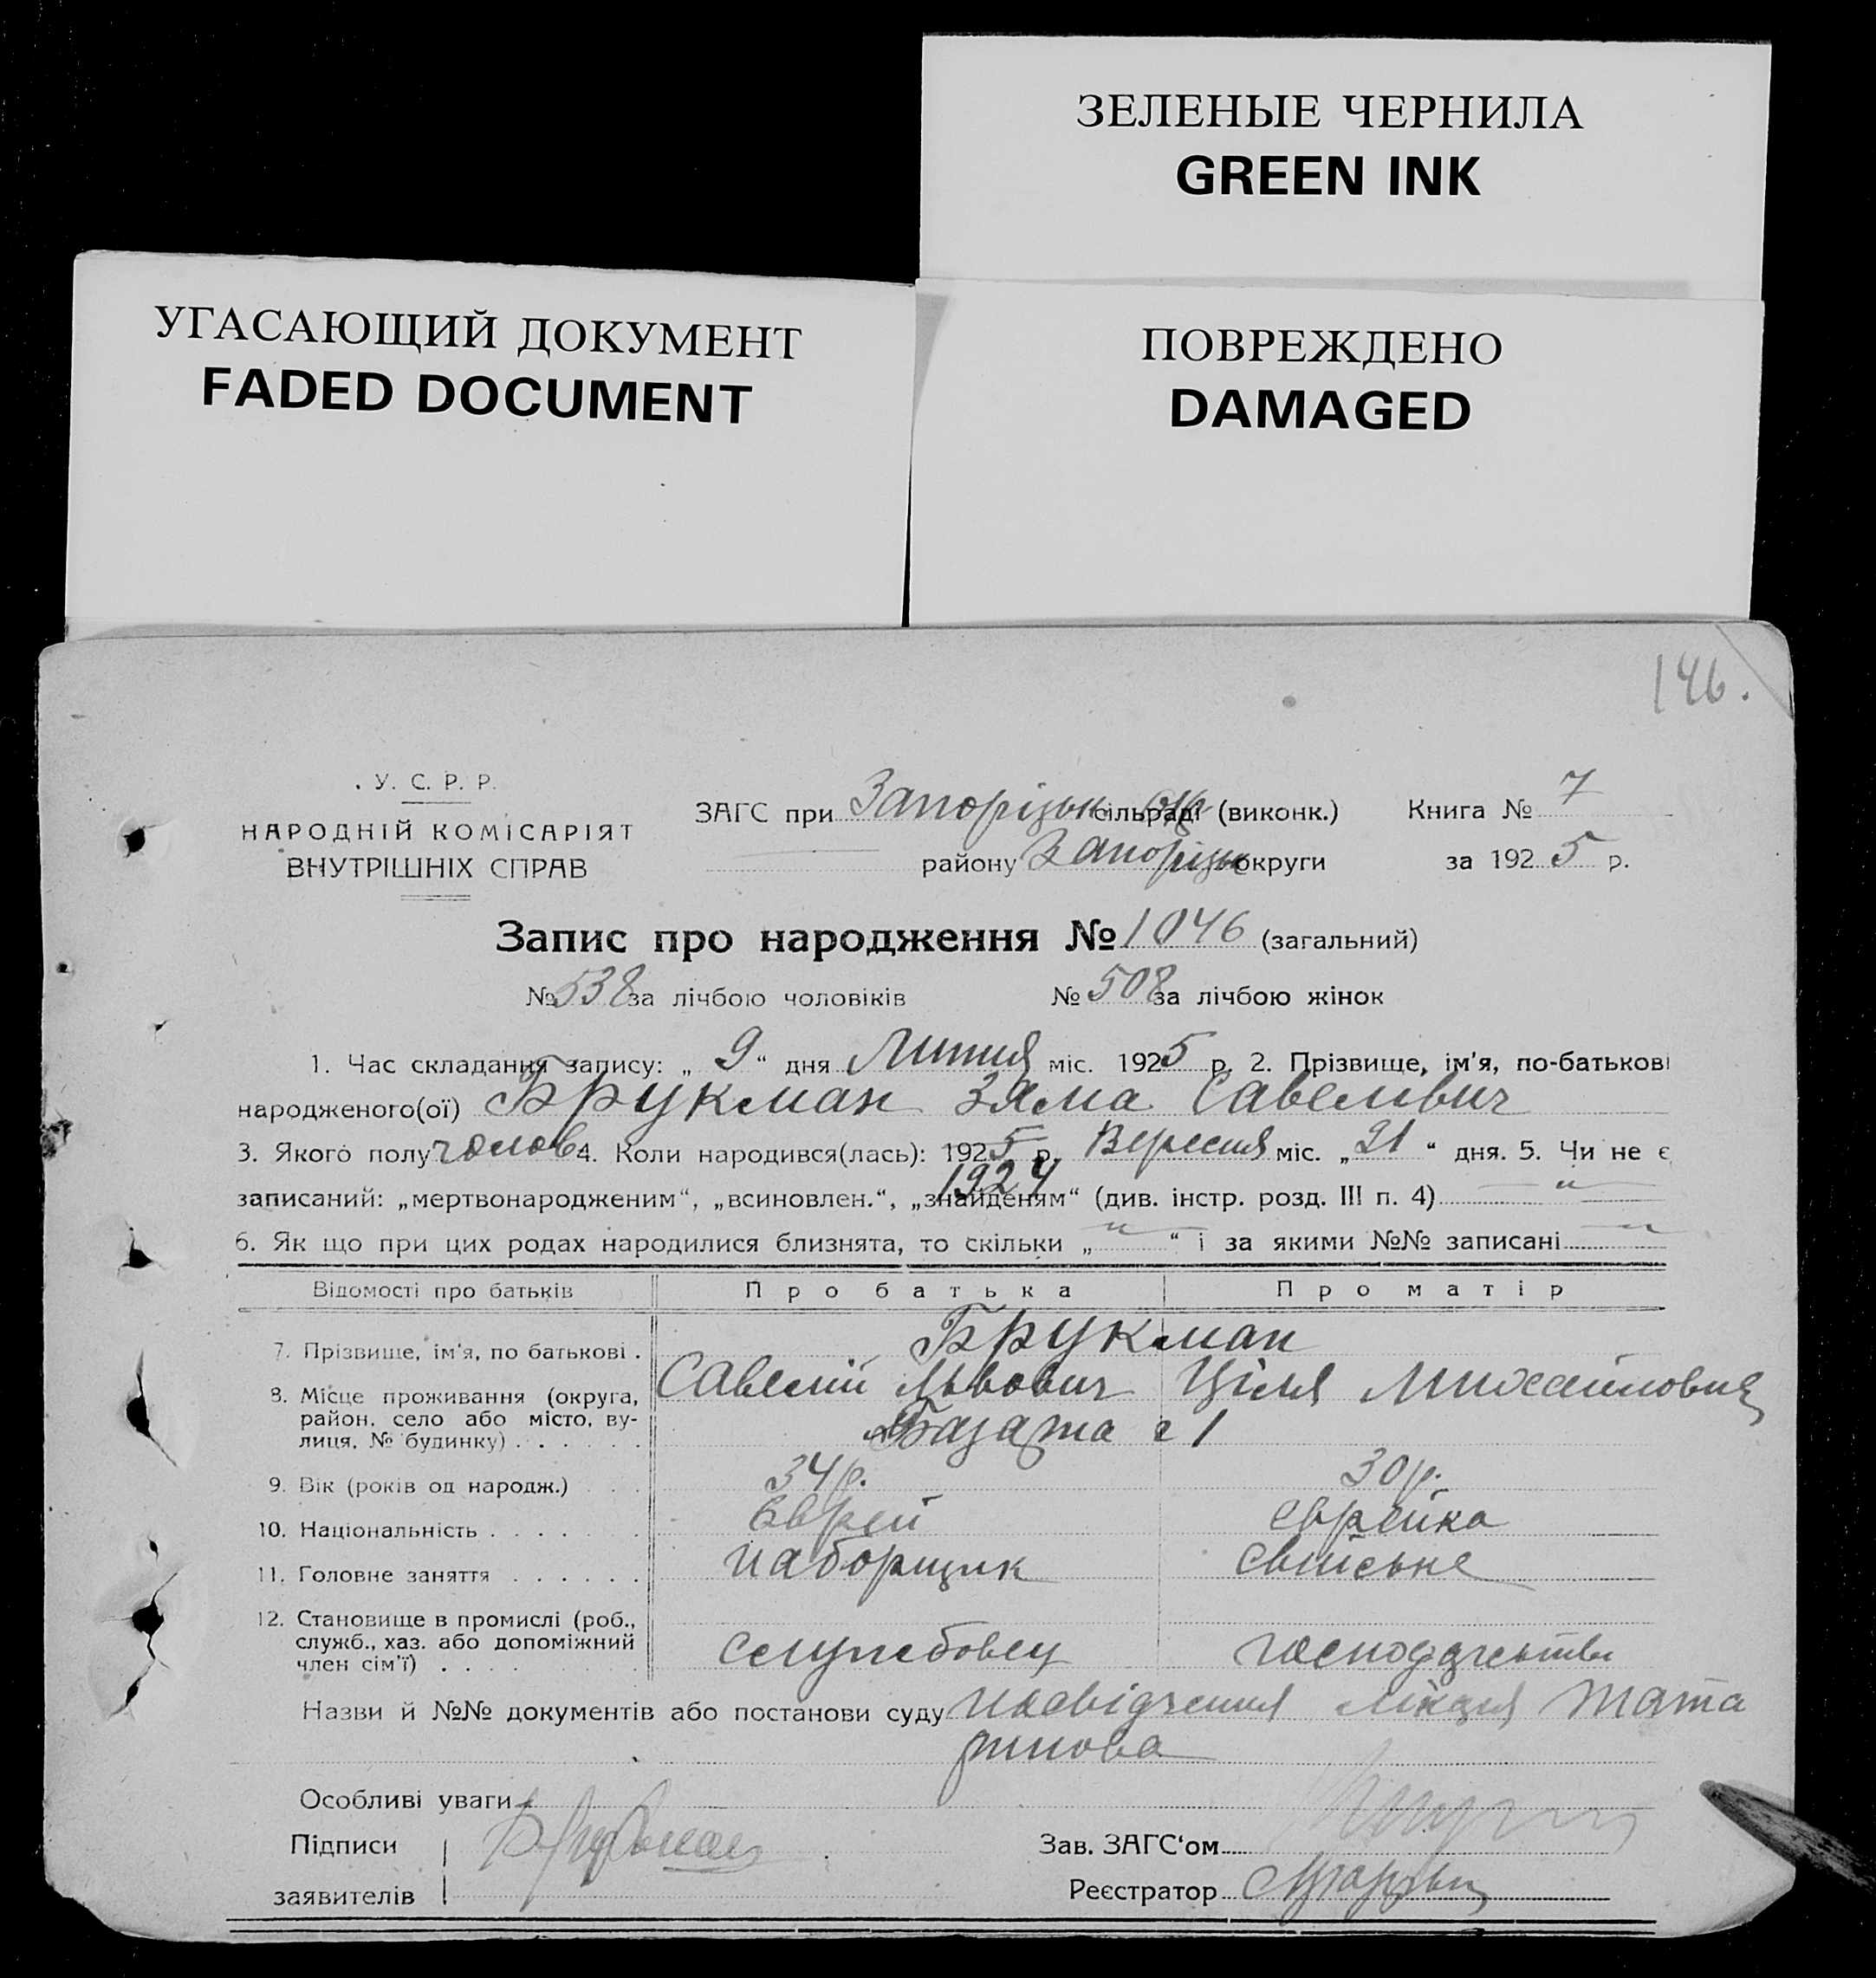 ЗЕЛЕНЫЕ ЧЕРНИЛА
GREEN INK
УГАСАЮЩИЙ ДОКУМЕНТ
FADED DOCUMENT
ПОВРЕЖДЕНО
DAMAGED
146.
У. С. Р. Р.
НАРОДНІЙ КОМІСАРІЯТ
ВНУТРІШНІХ СПРАВ
ЗАГС при Запоріцьк окр сільраді (виконк.)
району Запоріцьк округи
Книга № 7
за 1925 р.
Запис про народження № 1046 (загальний)
№ 538 за лічбою чоловіків № 508 за лічбою жінок
1. Час складання запису: „ 9 “ дня Липня міс. 1925 р. 2. Прізвище, ім'я, по-батькові
народженого(ої) Брукман Зяма Савелівич
3. Якого полу чолов 4. Коли народився(лась): 1925 р. Вересня міс. „ 21 “ дня. 5. Чи не є
1924
записаний: „мертвонародженим“, „всиновлен.“, „знайденям“ (див. інстр. розд. III п. 4) — „ —
6. Як що при цих родах народилися близнята, то скільки „ — “ і за якими №№ записані — „ —
Відомості про батьків Про батька Про матір
7. Прізвище, ім'я, по батькові . Брукман
8. Місце проживання (округа, Савелій Львович Ціля Михайловна
район, село або місто, ву-
лиця, № будинку) . . . . . . 1
9. Вік (років од народж.) . . . 34 р. 30 р.
10. Національність . . . . . . . Єврей єврейка
11. Головне заняття . . . . . . наборщик свійське
12. Становище в промислі (роб.,
служб., хаз. або допоміжний
член сім'ї) . . . . службовец господарство
Назви й №№ документів або постанови суду посвідчення Тата
ринова
Особливі уваги
Підписи Брукман
заявителів
Зав. ЗАГС'ом
Реєстратор